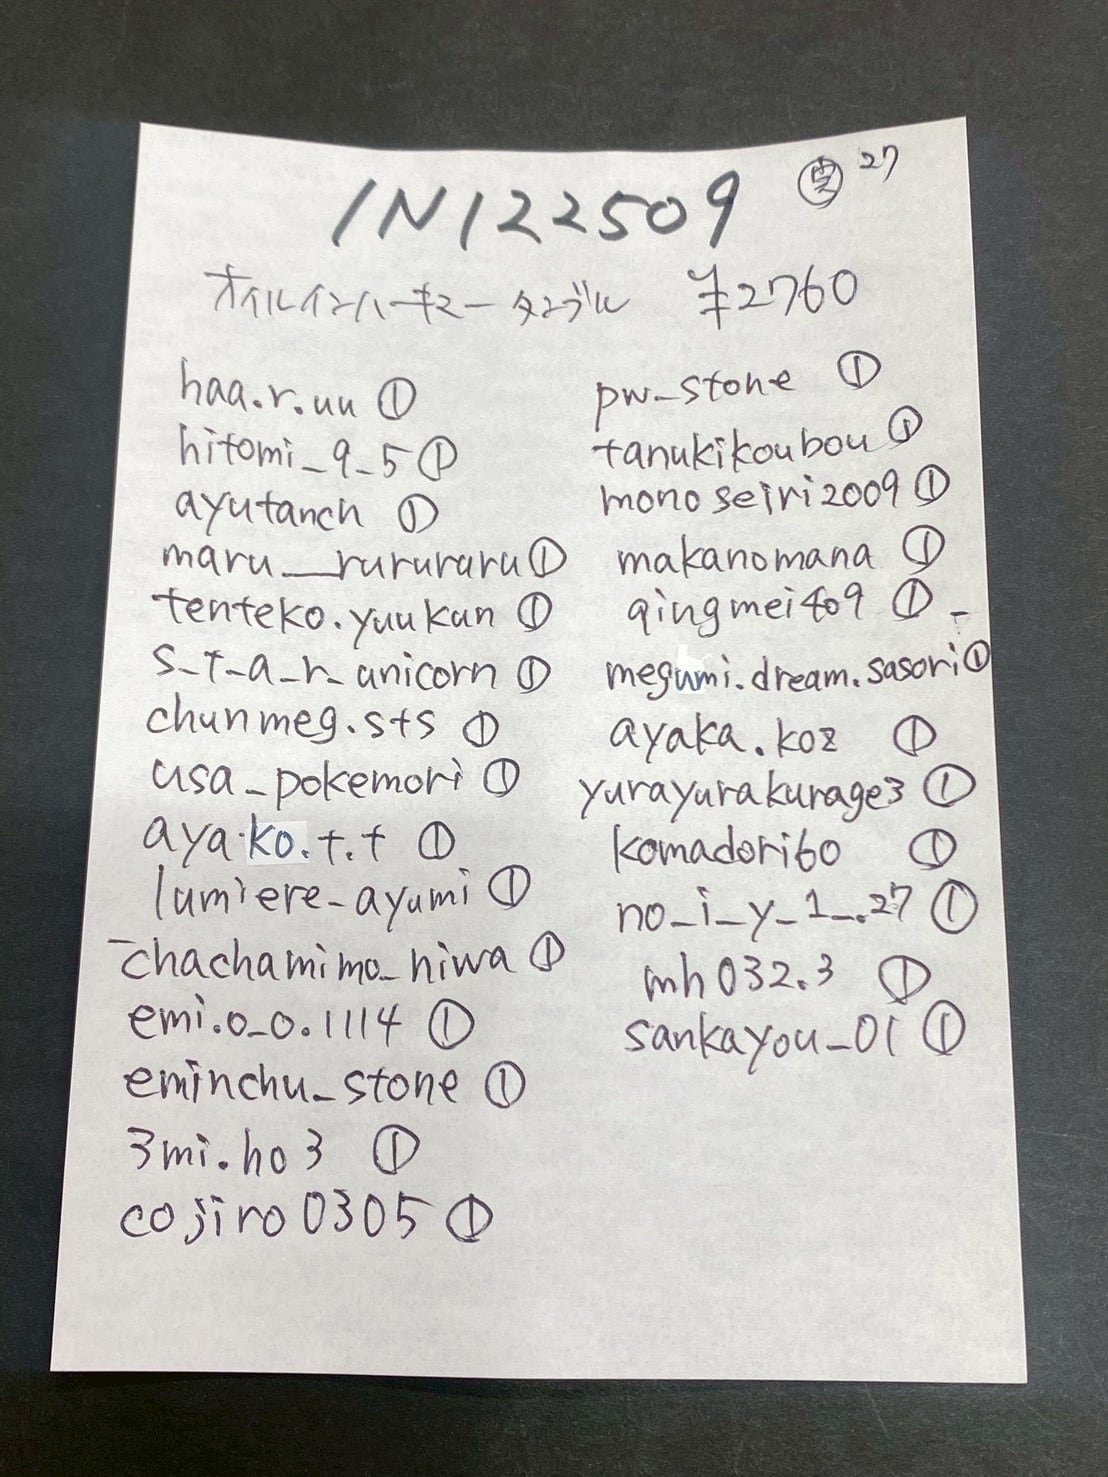 IN122509
27
オイルインハーキマータンブル ¥2760
haa.r.uu ①
hitomi_9_5 ①
ayutanch ①
maru__rururaru ①
tenteko.yuukun ①
s_t_a_r_unicorn ①
chunmeg.sts ①
usa_pokemori ①
aya.ko.t.t ①
lumiere_ayumi ①
chachamimo_niwa ①
emi.o_o.1114 ①
eminchu_stone ①
3mi.ho3 ①
cojiro0305 ①
pw_stone ①
tanukikoubou ①
monoseiri2009 ①
makanomana ①
qingmei409 ①
megumi.dream.sasori ①
ayaka.koz ①
yurayurakurage3 ①
komadori60 ①
no_i_y_1_.27 ①
mh032.3 ①
sankayou_01 ①